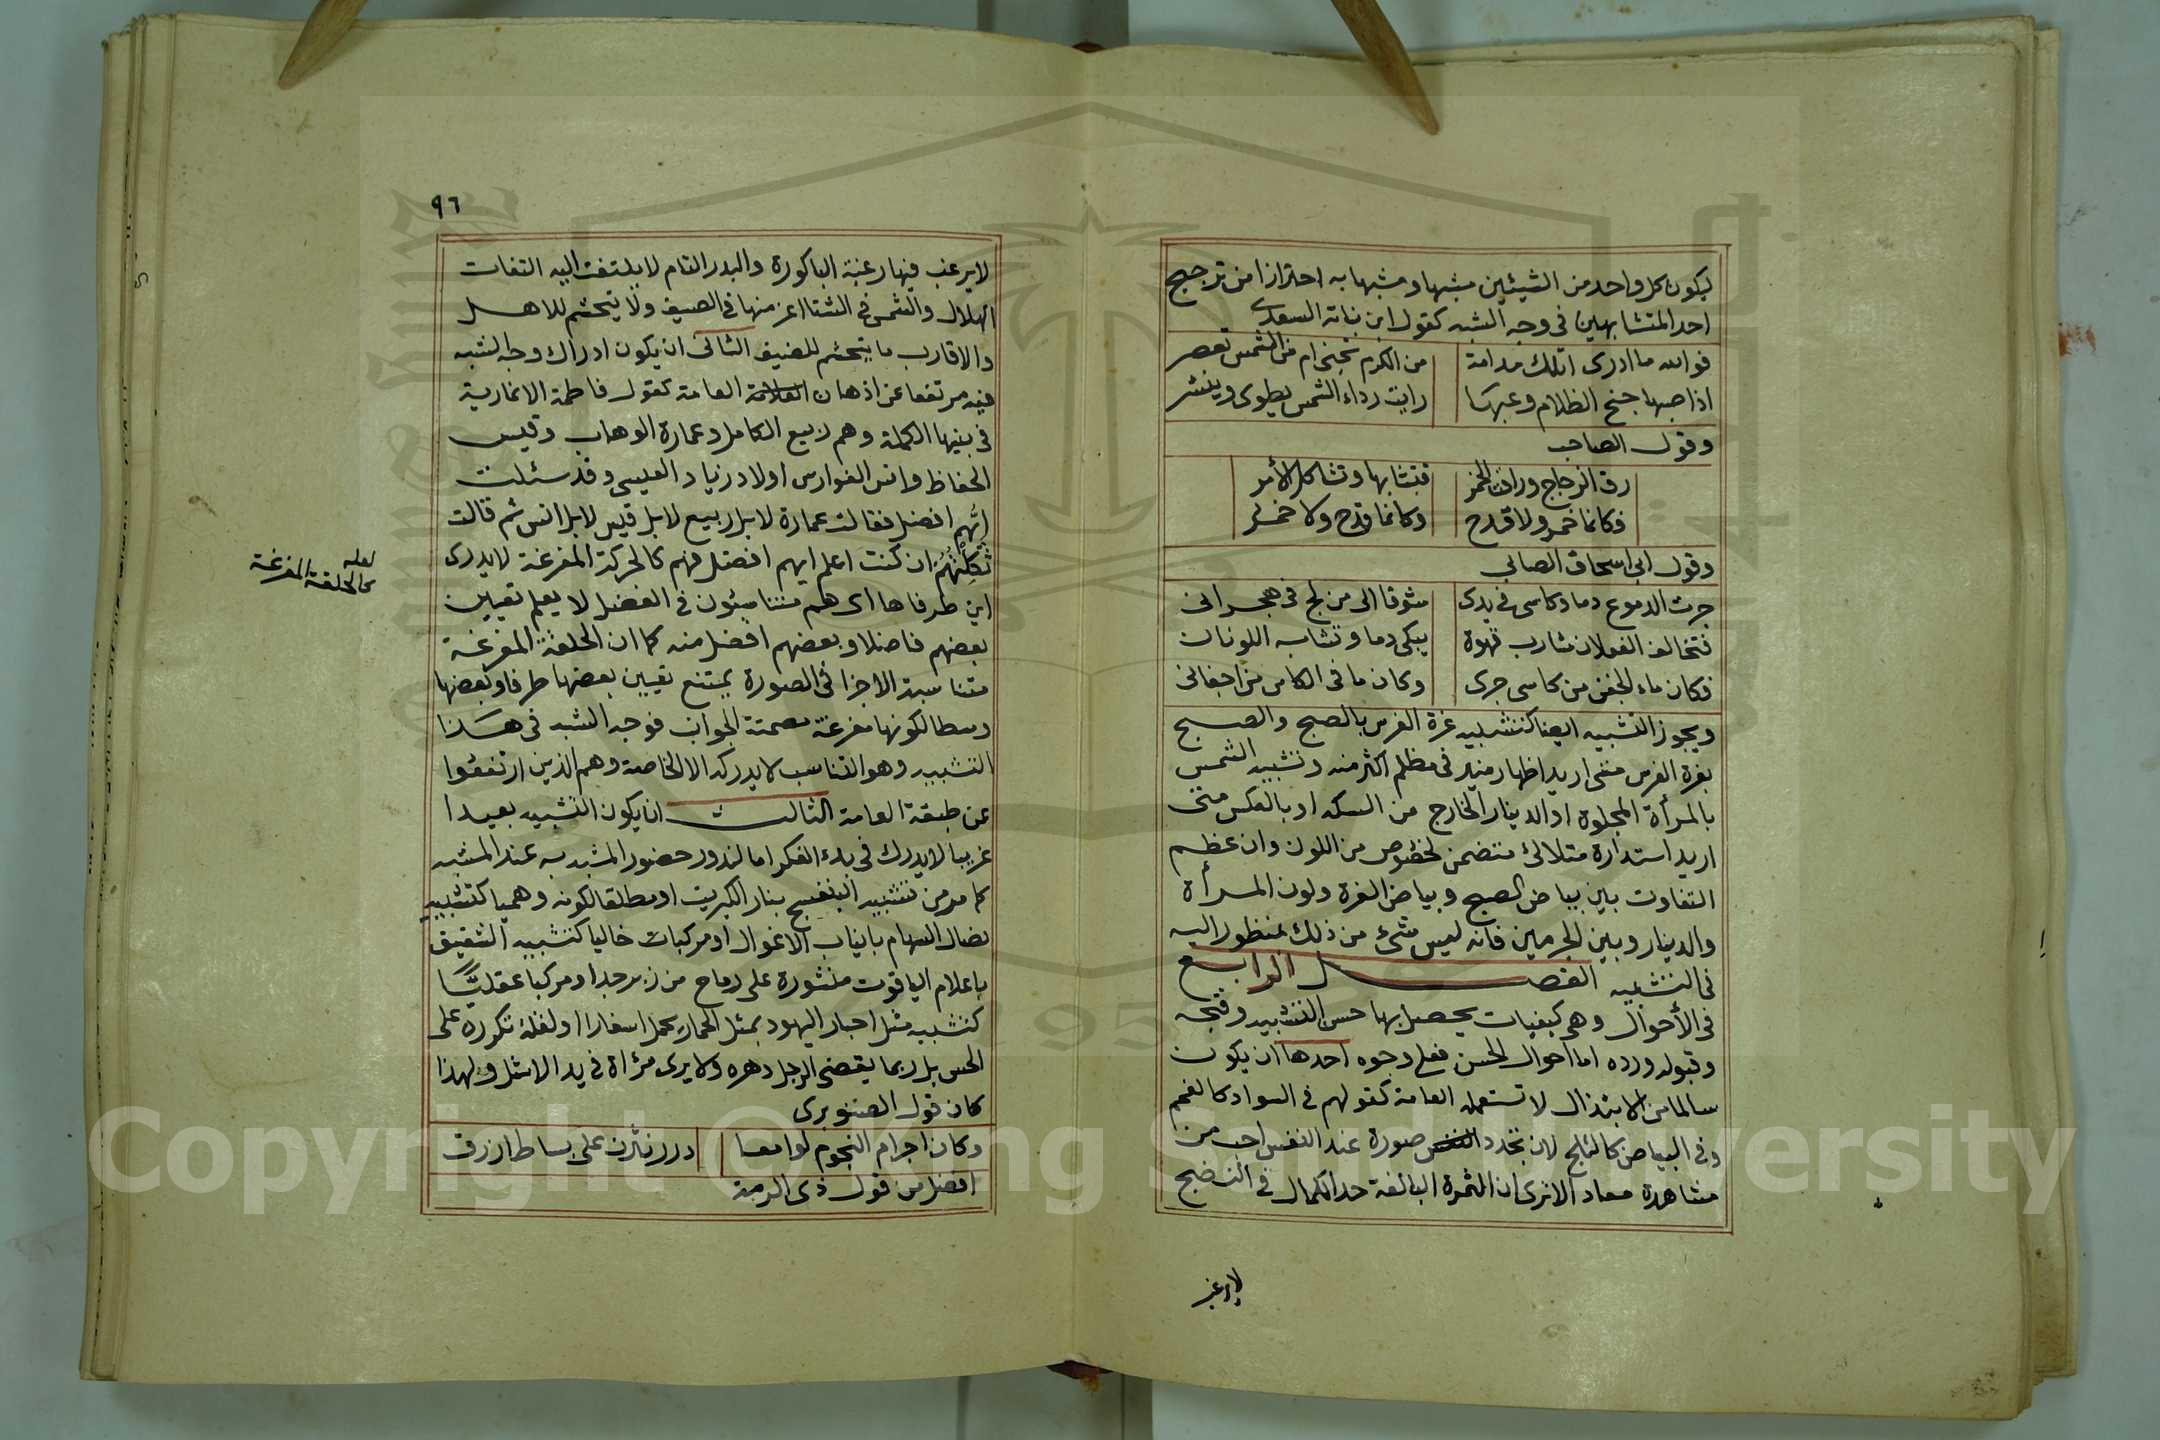 ليكون كل واحد من الشيئين مشبها ومشبها به احترازا من ترجيح
احد المتشابهين في وجه الشبه كقول ابن نباته السعدي
فوالله ما ادرى اتلك مدامة من الكرم تجنى ام من الشمس تعصر
اذا صبها جنح الظلام وعبها رايت رداء الشمس يطوى وينشر
وقول الصاحب
رق الزجاج وراقت الخمر فتشابها وتشاكل الأمر
فكانما خمر ولا قدح وكانما قدح ولا خمر
وقول ابي اسحاق الصابي
جرت الدموع دما وكاسى في يدى شوقا الى من لج في هجرانى
فتخالف الفعلان شارب قهوة يبكى دما وتشابه اللونان
فكان ماء الجفن من كاسى جرى وكان ما في الكاس من اجفانى
ويجوز التشبيه ايضا كتشبيه غرة الفرس بالصبح والصبح
بغرة الفرس متى اريد اظهار منير في مظلم اكثر منه وتشبيه الشمس
بالمرأة المجلوة او الدينار الخارج من السكه او بالعكس متى
اريد استدارة متلالئ متضمن لخصوص من اللون وان عظم
التفاوت بين بياض الصبح وبياض الغرة ولون المرأة
والدينار وبين الجرمين فانه ليس شئ من ذلك بمنظور اليه
في التشبيه الفصل الرابع
في الأحوال وهى كيفيات يحصل بها حسن التشبيه وقبحه
وقبوله ورده اما احوال الحسن فعلى وجوه احدها ان يكون
سالما من الابتذال لا تستعمله العامة كقولهم في السواد كالفحم
وفي البياض كالثلج لان تجدد صورة عند النفس احب من
مشاهدة معاد الا ترى ان الثمرة البالغة حد الكمال في النضج
لا يرغب
٩٦
لا يرغب فيها رغبة الباكورة والبدر التام لا يلتفت اليه التفات
الهلال والشمس في الشتا اعز منها في الصيف ولا يتحشم للاهل
والاقارب ما يتحشم للضيف الثانى ان يكون ادراك وجه الشبه
فيه مرتفعا عن اذهان العامة كقول فاطمة الانمارية
في بنيها الكملة وهم ربيع الكامل وعمارة الوهاب وقيس
الحفاظ وانس الفوارس اولاد زياد العبسى وقد سئلت
ايهم افضل فقالت عمارة لا بل ربيع لا بل قيس لا بل انس ثم قالت
ثكلتهم ان كنت اعلم ايهم افضل هم كالحركة المفرغة لا يدرى
لعله
كالحلقة المفرغة
اين طرفاها اى هم متناسبون في الفضل لا يعلم تعيين
بعضهم فاضلا وبعضهم افضل منه كما ان الحلقة المفرغة
متناسبة الاجزا في الصورة يمتنع تعيين بعضها طرفا وبعضها
وسطا لكونها مفرغة مصمتة الجوانب فوجه الشبه في هذا
التشبيه وهو التناسب لا يدركه الا الخاصة وهم الذين ارتفعوا
عن طبقة العامة الثالث ان يكون التشبيه بعيدا
غريبا لا يدرك في بدء الفكر اما لندور حضور المشبه به عند المشبه
كما مر من تشبيه البنفسج بنار الكبريت او مطلقا لكونه وهميا كتشبيه
نصال السهام بانياب الاغوال او مركبات خاليا كتشبيه الشقيق
باعلام الياقوت منشورة على رماح من زبرجد او مركبا عقليًا
كتشبيه مثل احبار اليهود بمثل الحمار يحمل اسفارا او لقلة تكرره على
الحس بل ربما يقضى الرجل دهره ولا يرى مرأة في يد الاشل ولهذا
كان قول الصنوبرى
وكان اجرام النجوم لوامعا درر نثرن على بساط ازرق
افضل من قول ذى الرمة
Copyright © King Saud University